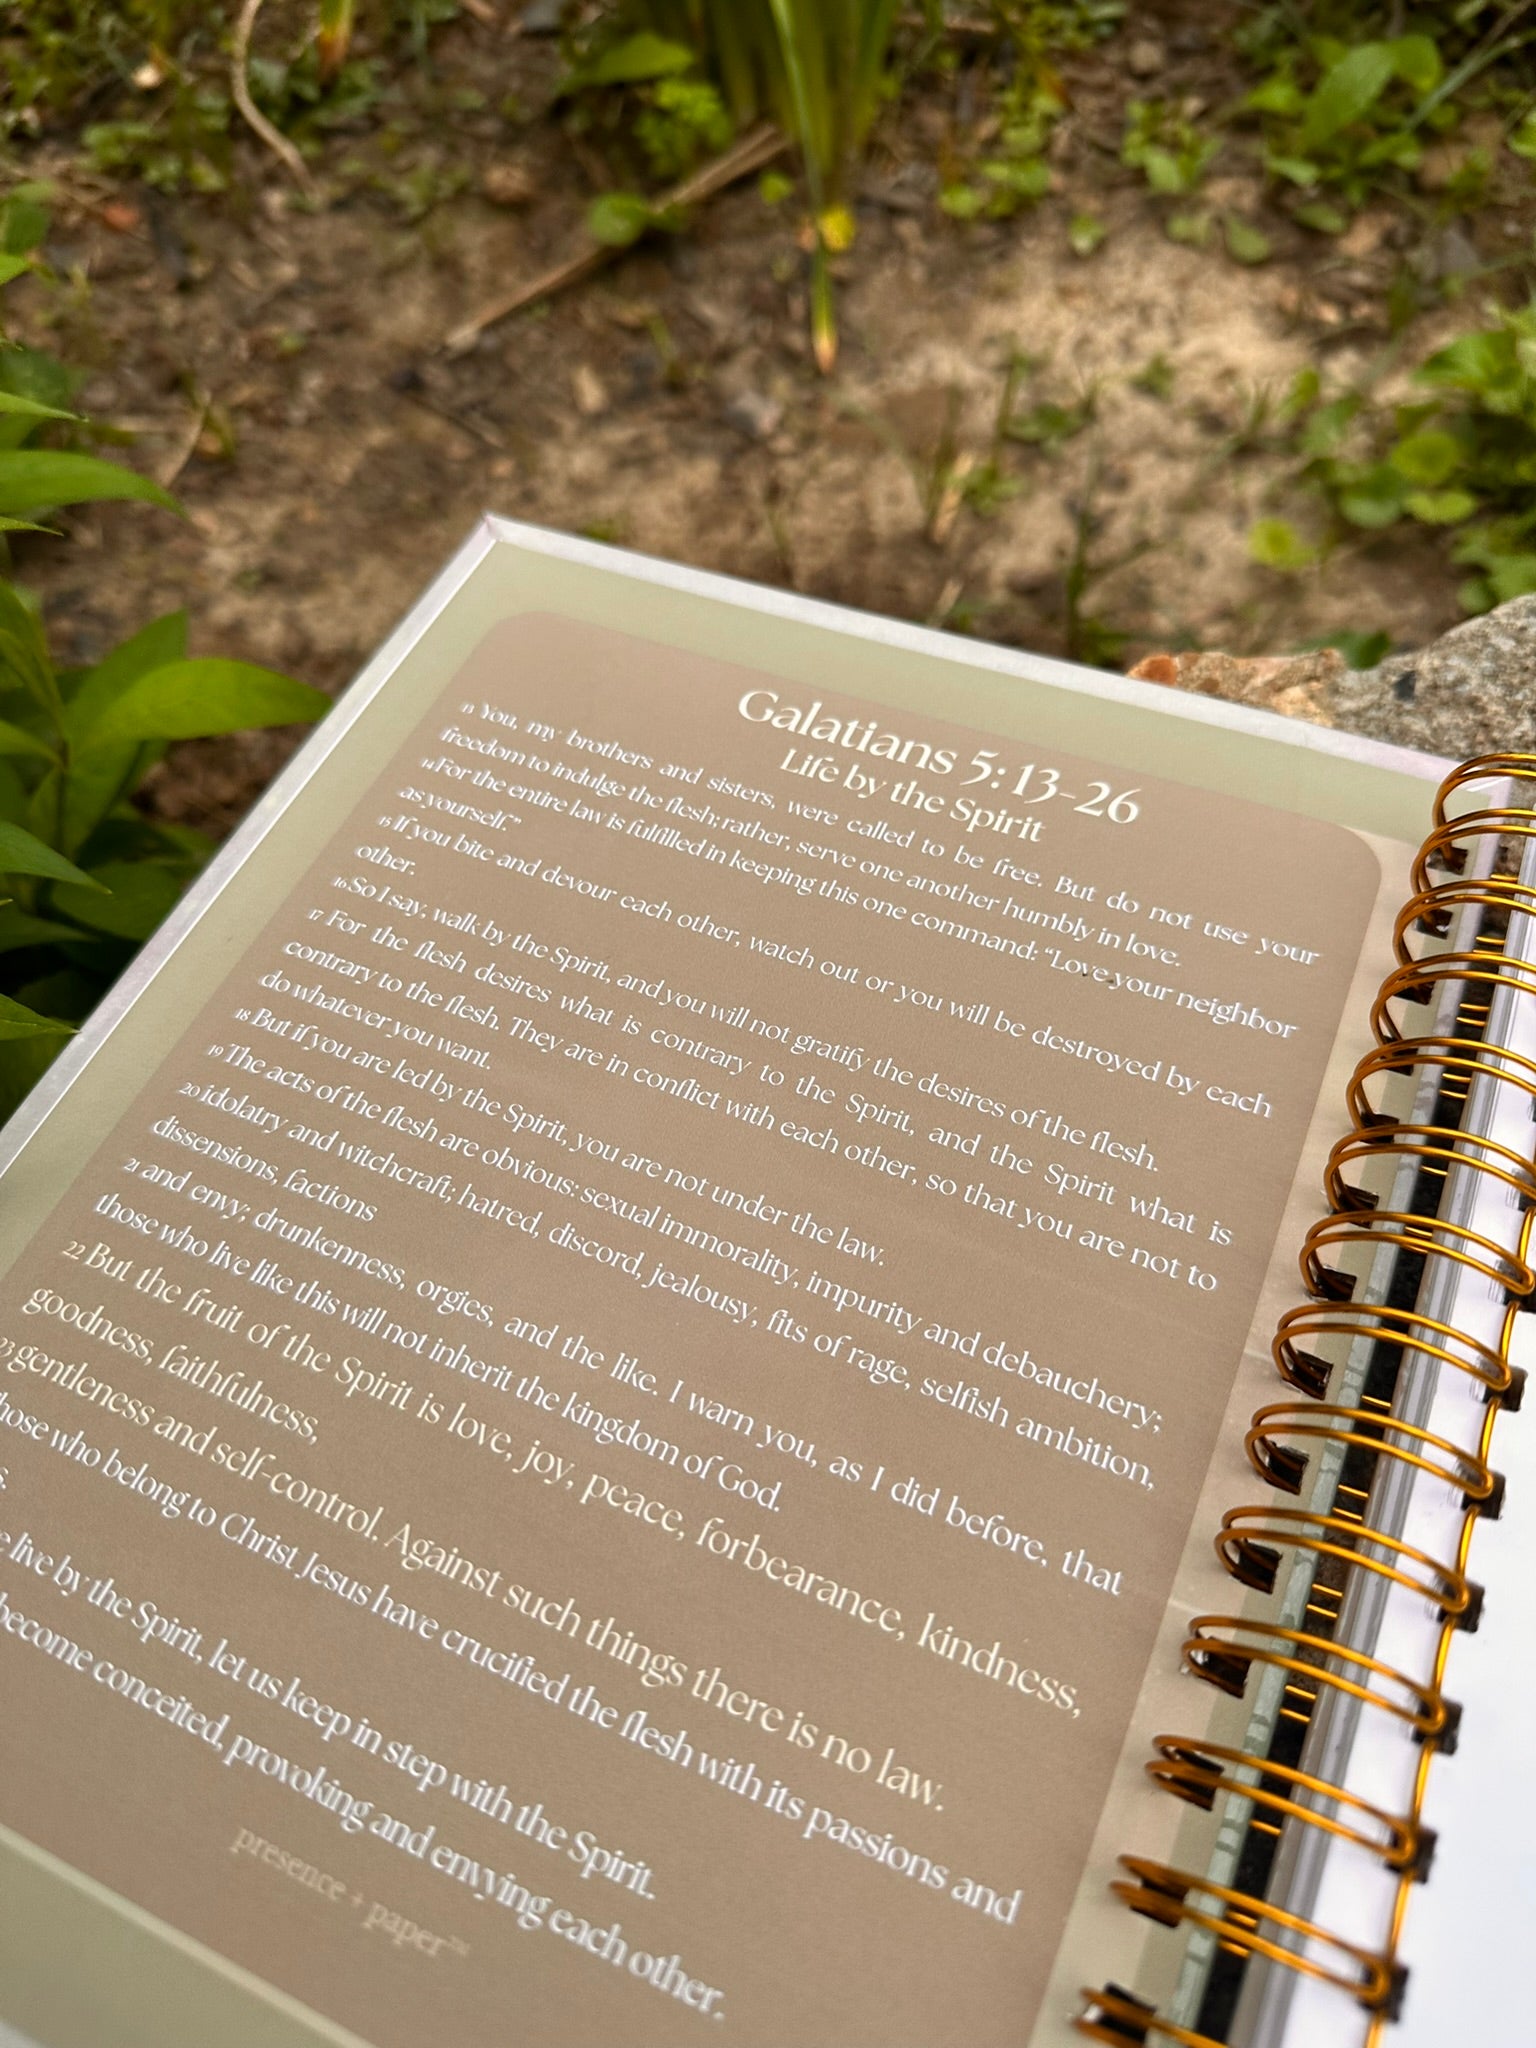 Galatians 5:13-26
Life by the Spirit
13 You, my brothers and sisters, were called to be free. But do not use your
freedom to indulge the flesh; rather, serve one another humbly in love.
14 For the entire law is fulfilled in keeping this one command: “Love your neighbor
as yourself.”
15 If you bite and devour each other, watch out or you will be destroyed by each
other.
16 So I say, walk by the Spirit, and you will not gratify the desires of the flesh.
17 For the flesh desires what is contrary to the Spirit, and the Spirit what is
contrary to the flesh. They are in conflict with each other, so that you are not to
do whatever you want.
18 But if you are led by the Spirit, you are not under the law.
19 The acts of the flesh are obvious: sexual immorality, impurity and debauchery;
20 idolatry and witchcraft; hatred, discord, jealousy, fits of rage, selfish ambition,
dissensions, factions
21 and envy; drunkenness, orgies, and the like. I warn you, as I did before, that
those who live like this will not inherit the kingdom of God.
22 But the fruit of the Spirit is love, joy, peace, forbearance, kindness,
goodness, faithfulness,
23 gentleness and self-control. Against such things there is no law.
those who belong to Christ Jesus have crucified the flesh with its passions and
live by the Spirit, let us keep in step with the Spirit.
become conceited, provoking and envying each other.
presence + paper™